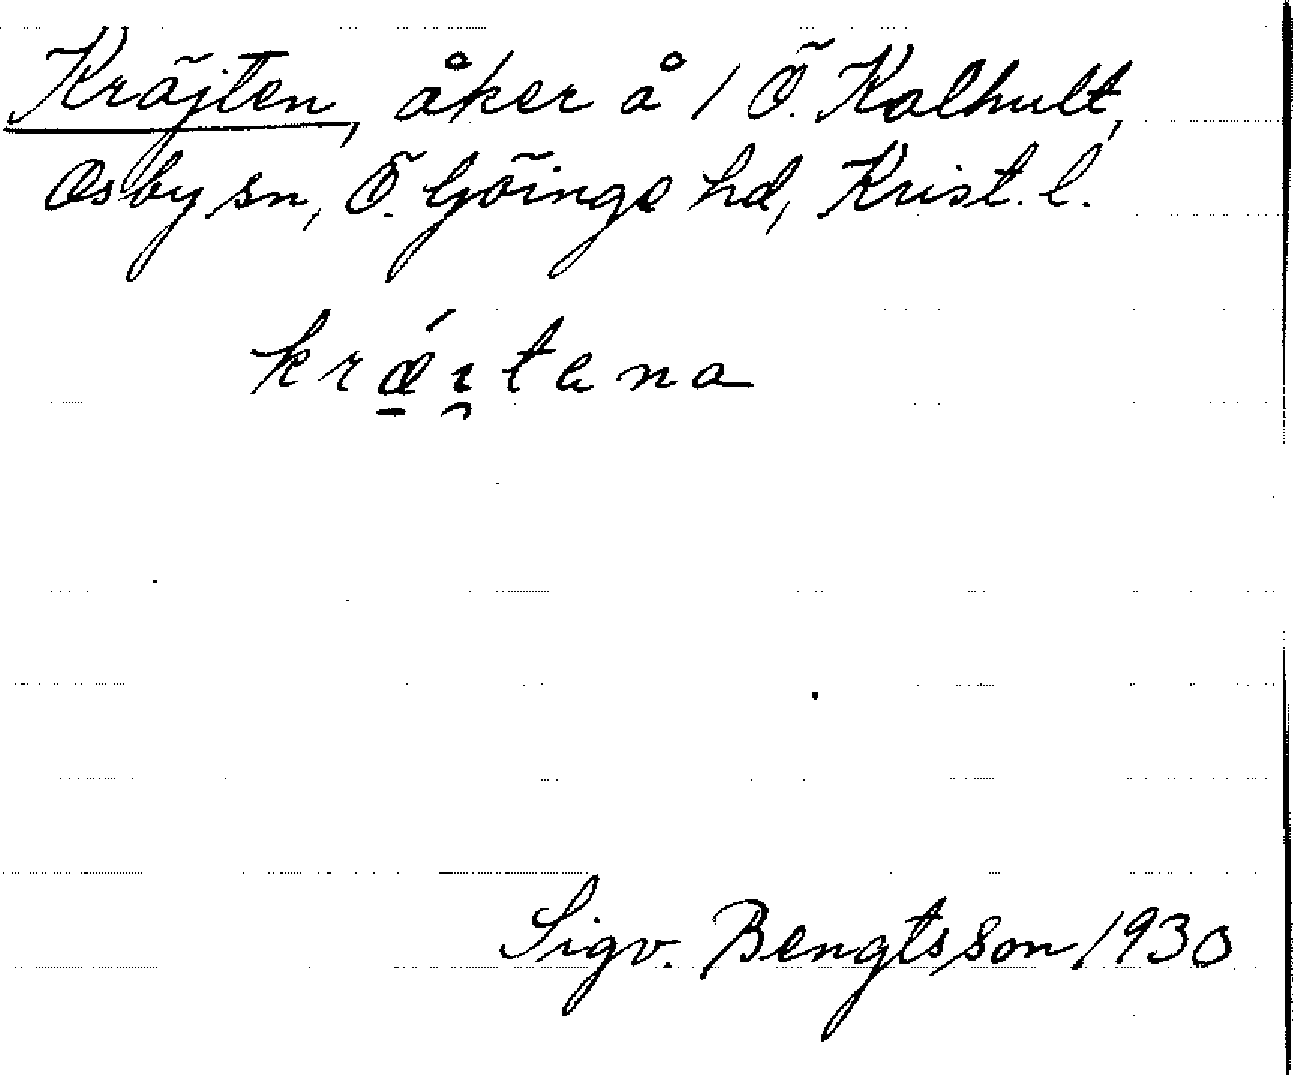 Kräjten, åker å 1 Ö. Kalhult,
Osby sn, Ö. Göinge hd, Krist. l.
Sigv. Bengtsson 1930